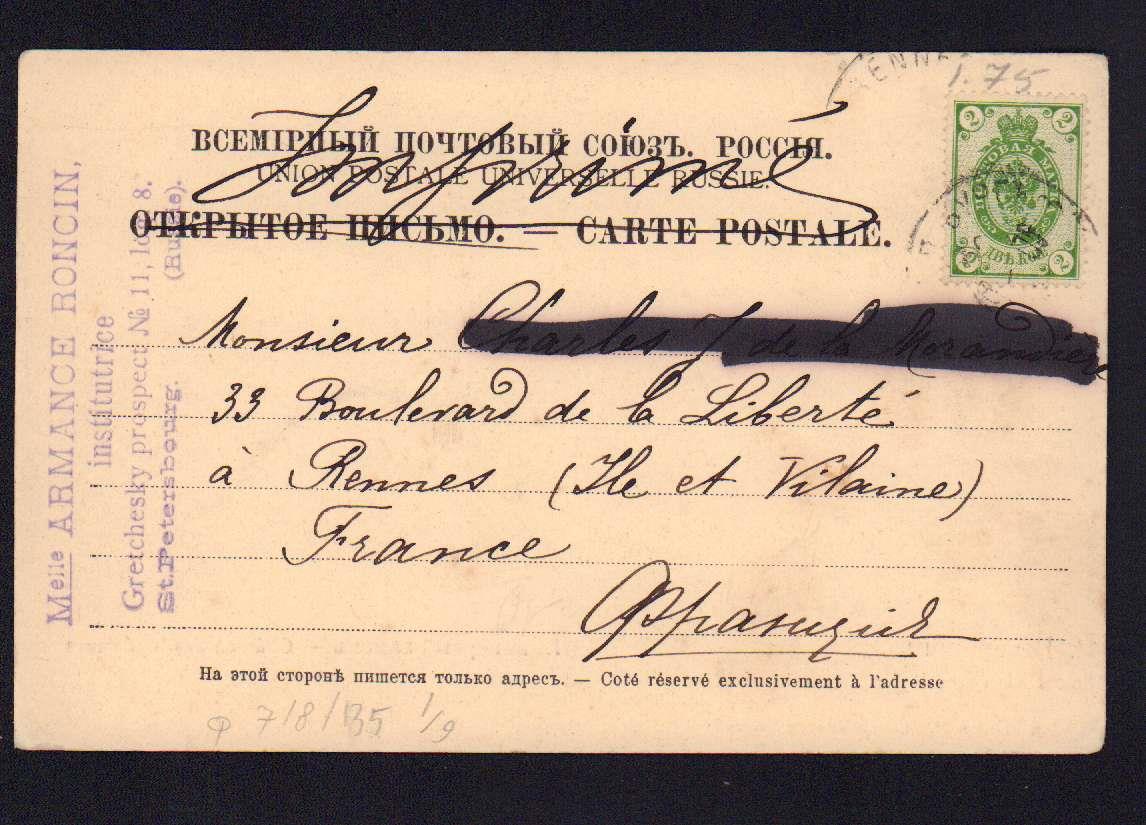 1.75
ВСЕМІРНЫЙ ПОЧТОВЫЙ СОЮЗЪ. РОССІЯ.
UNION POSTALE UNIVERSELLE RUSSIE.
Imprimé
ОТКРЫТОЕ ПИСЬМО. — CARTE POSTALE.
2 2
2 2
Melle ARMANCE RONCIN,
institutrice
Gretchesky prospect № 11, 8.
St.Petersbourg. (Russie).
Monsieur Charles de la
33 Boulevard de la Liberté
à Rennes (Ile et Vilaine)
France
Франція
На этой сторонѣ пишется только адресъ. — Coté réservé exclusivement à l'adresse